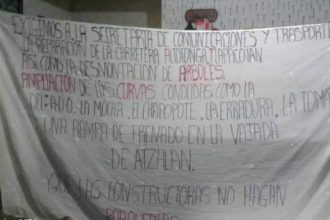 EXIGIMOS A LA SECRETARIA DE COMUNICACIONES Y TRASPORTE
LA REPARACION DE LA CARRETERA ALTOTONGA, TLAPACOYAN
ASI COMO LA DESMONTACION DE ARBOLES.
AMPLIACION DE LAS CURVAS CONOCIDAS COMO LA
LA MOCHA, EL CHAPOPOTE, LA ERRADURA, LA TOMA
UNA RAMPA DE FRENADO EN LA VAJADA
DE ATZALAN.
QUE LAS CONSTRUCTORAS NO HAGAN